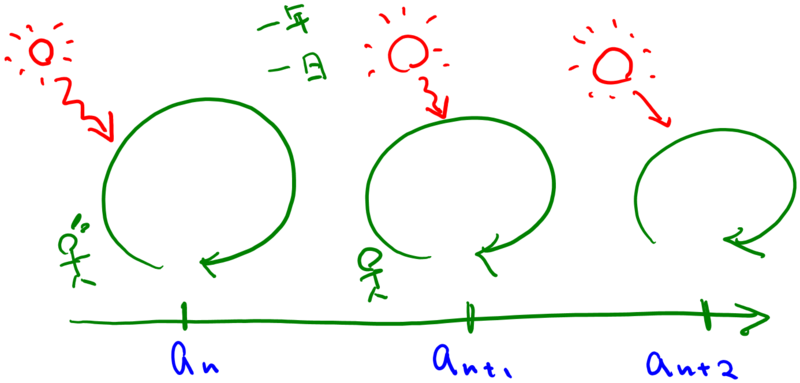 一年
一日
aₙ
aₙ₊₁
aₙ₊₂